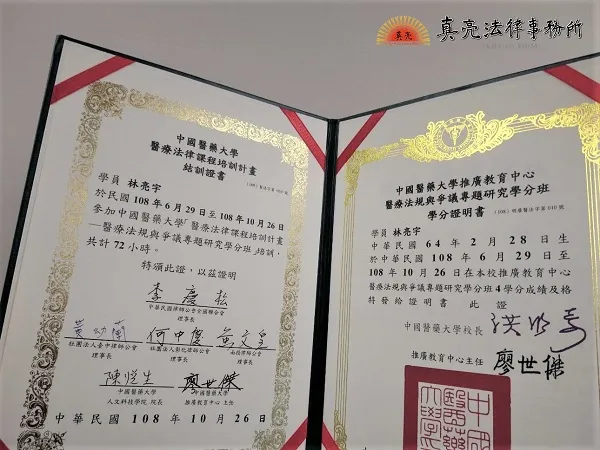 真亮
真亮法律事務所
中國醫藥大學
醫療法律課程培訓計畫
結訓證書
學員 林亮宇
於民國 108 年 6 月 29 日至 108 年 10 月 26 日
參加中國醫藥大學「醫療法律課程培訓計畫
—醫療法規與爭議專題研究學分班」培訓,
共計 72 小時。
特頒此證,以茲證明
李慶松
中華民國律師公會全國聯合會
理事長
黃幼蘭 何中慶 黃文皇
社團法人臺中律師公會 社團法人彰化律師公會 南投律師公會
理事長 理事長 理事長
陳悅生 廖世傑
中國醫藥大學 中國醫藥大學
人文科技學院 院長 推廣教育中心 主任
中華民國 108 年 10 月 26 日
中國醫藥大學推廣教育中心
醫療法規與爭議專題研究學分班
學分證明書
學員 林亮宇
中華民國 64 年 2 月 28 日生
於中華民國 108 年 6 月 29 日至
108 年 10 月 26 日在本校推廣教育中心
醫療法規與爭議專題研究學分班 4 學分成績及格
特發給證明書 此證
中國醫藥大學校長
推廣教育中心主任 廖世傑